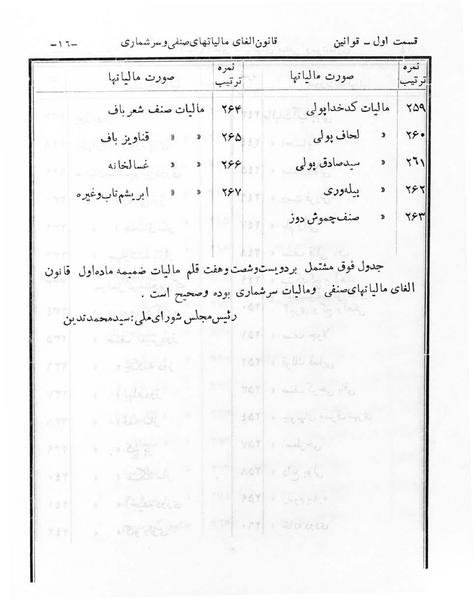 قسمت اول ـ قوانین قانون الغای مالیاتهای صنفی و سرشماری -۱۶-
نمره ترتیب صورت مالیاتها نمره ترتیب صورت مالیاتها
۲۵۹ مالیات کدخداپولی ۲۶۴ مالیات صنف شعرباف
۲۶۰ » لحاف پولی ۲۶۵ » » قناویز باف
۲۶۱ » سیدصادق پولی ۲۶۶ » » غسالخانه
۲۶۲ » پیله‌وری ۲۶۷ » » ابریشم‌تاب وغیره
۲۶۳ » صنف چموش دوز
جدول فوق مشتمل بر دویست و شصت و هفت قلم مالیات ضمیمه ماده اول قانون
الغای مالیاتهای صنفی و مالیات سرشماری بوده و صحیح است .
رئیس مجلس شورای ملی: سید محمد تدین